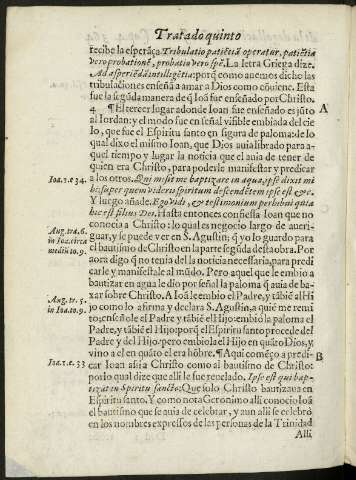 Tratado quinto
recibe la esperãça Tribulatio patiẽtiã operatur, patiẽtia
vero probationẽ, probatio vero spẽ. La letra Griega dize.
Ad asperiẽdã intelligẽtiã: porq̃ como auemos dicho las
tribulaciones enseñã a amar a Dios como cõuiene. Esta
fue la segũda manera de q̃ Ioã fue enseñado por Christo.
4 ¶ El tercer lugar adonde Ioan fue enseñado es jũto A
al Iordan: y el modo fue en señal visible embiada del cie
lo, que fue el Espiritu santo en figura de paloma: de lo
qual dixo el mismo Ioan, que Dios auia librado para a-
quel tiempo y lugar la noticia que el auia de tener de
quien era Christo, para poderle manifestar y predicar
Ioa.1.e.34. a los otros. Qui misit me baptizare in aqua, ipse dixit mi
hi: super quem videris spiritum descendẽtem ipse est &c.
Y luego añade. Ego vidi, & testimonium perhibui quia
hic est filius Dei. Hasta entonces confiessa Ioan que no
Aug. tra.6. conocia a Christo: lo qual es negocio largo de aueri-
in Ioa. circa guar, y se puede ver en S. Agustin: q̃ yo lo guardo para
mediũ to.9. el bautismo de Christo en la parte segũda desta obra. Por
aora digo q̃ no tenia del la noticia necessaria, para predi
carle y manifestarle al mũdo. Pero aquel que le embio a
bautizar en agua le dio por señal la paloma q̃ auia de ba-
Aug. tr. 5. xar sobre Christo. A Ioã le embio el Padre, y tãbiẽ el Hi
in Ioa to.9. jo como lo afirma y declara S. Agustin, a quiẽ me remi
to: enseñole el Padre y tãbiẽ el Hijo: embio la paloma el
Padre, y tãbiẽ el Hijo: porq̃ el Espiritu santo procede del
Padre y del Hijo: pero embiola el Hijo en quãto Dios, y
vino a el en quãto el era hõbre. ¶ Aqui començo a predi B
Ioa.1.e.33 car Ioan assi a Christo como al bautismo de Christo:
por lo qual dize que alli le fue reuelado. Ipse est qui bap-
tizat in Spiritu sancto: Que solo Christo bautizaua en
Espiritu santo. Y como nota Geronimo alli conocio Ioã
el bautismo que se auia de celebrar, y aun alli se celebrò
en los nombres expressos de las personas de la Trinidad
Alli